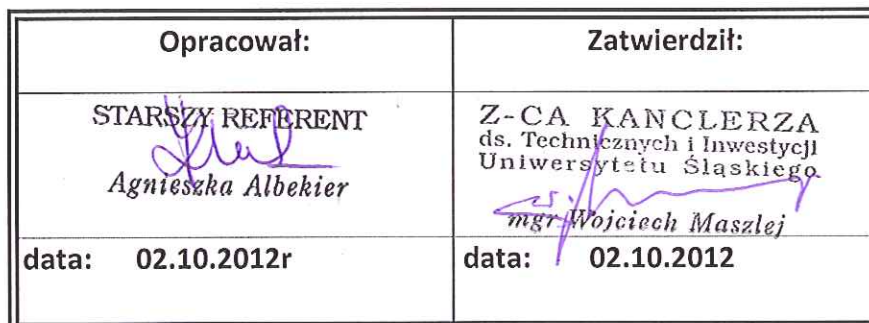 Opracował:
Zatwierdził:
STARSZY REFERENT
Agnieszka Albekier
Z-CA KANCLERZA
ds. Technicznych i Inwestycji
Uniwersytetu Śląskiego
mgr Wojciech Maszlej
data: 02.10.2012r
data: 02.10.2012